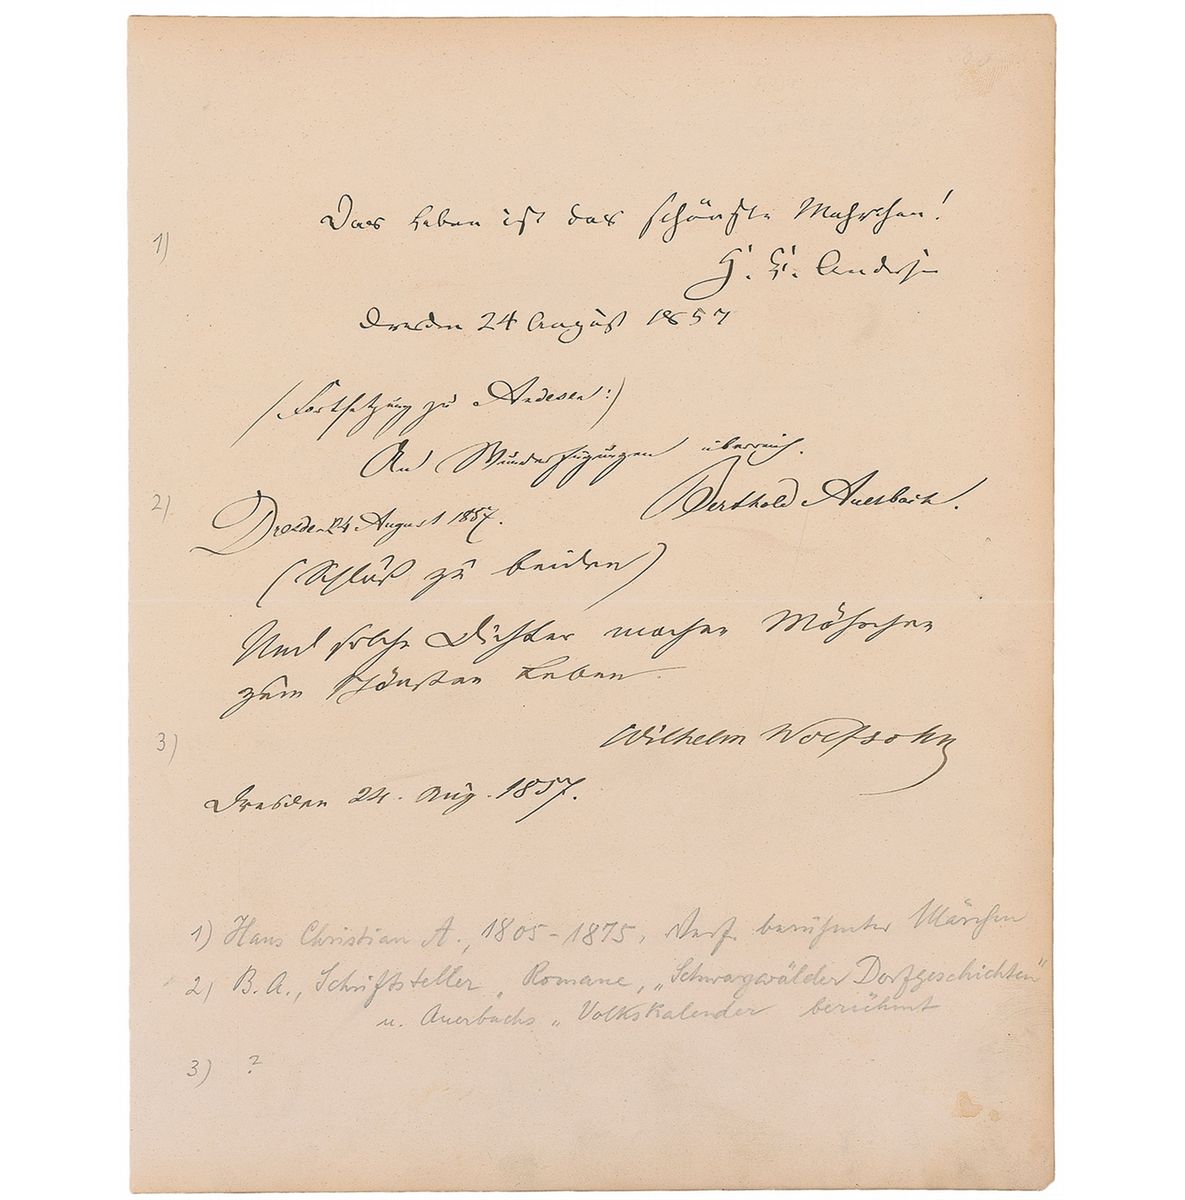 1)
Das Leben ist das schönste Mahrchen!
H. C. Andersen
Dresden 24 August 1857
(Fortsetzung zu Andersen:)
An Wunderfügungen überreich.
2)
Berthold Auerbach.
Dresden 24 August 1857.
(Schluß zu beiden)
Und solche Dichter machen Mährchen
zum schönsten Leben.
3)
Wilhelm Wolfsohn
Dresden 24. Aug. 1857.
1) Hans Christian A., 1805-1875, Verf. berühmter Märchen
2) B. A., Schriftsteller, Romane, "Schwarzwälder Dorfgeschichten"
u. Auerbachs "Volkskalender berühmt
3) ?